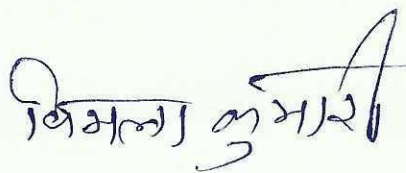 विमला कुमारी